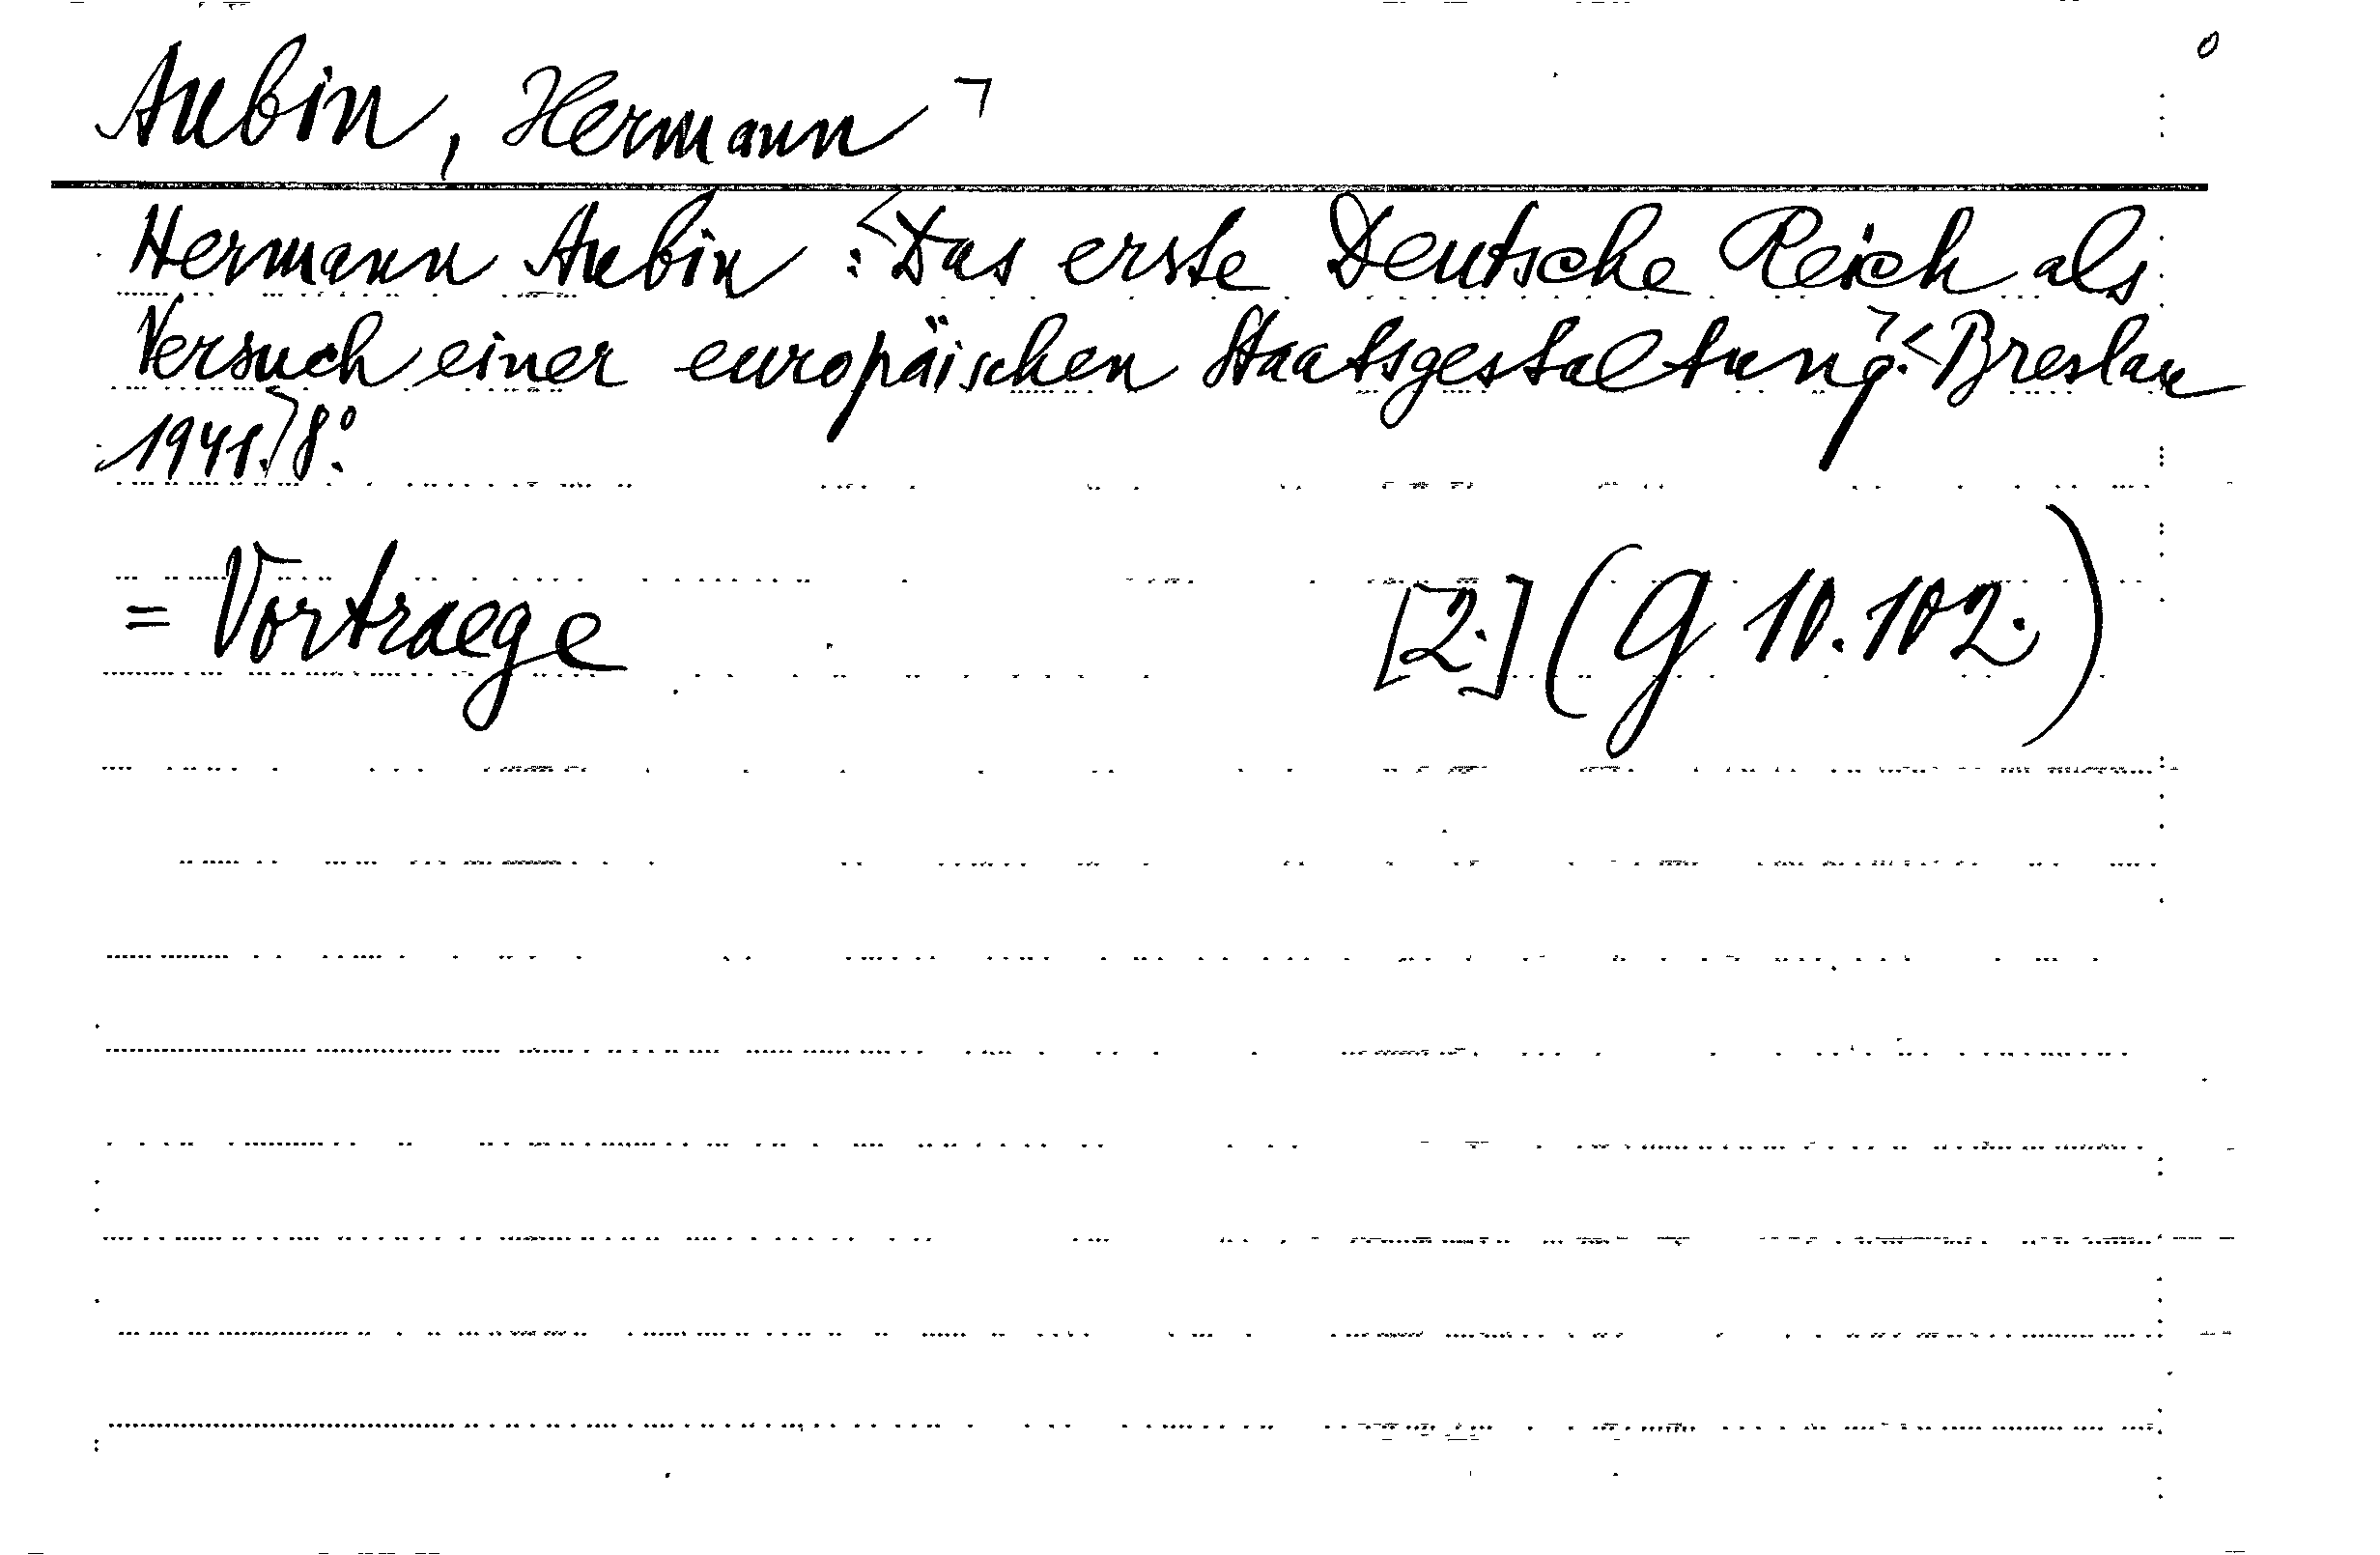 Aubin, Hermann ¬
Hermann Aubin: <Das erste Deutsche Reich als
Versuch einer europäischen Staatsgestaltung.> <Breslau
1941.> 8°.
= Vortraege [2.] (G 10.102.)